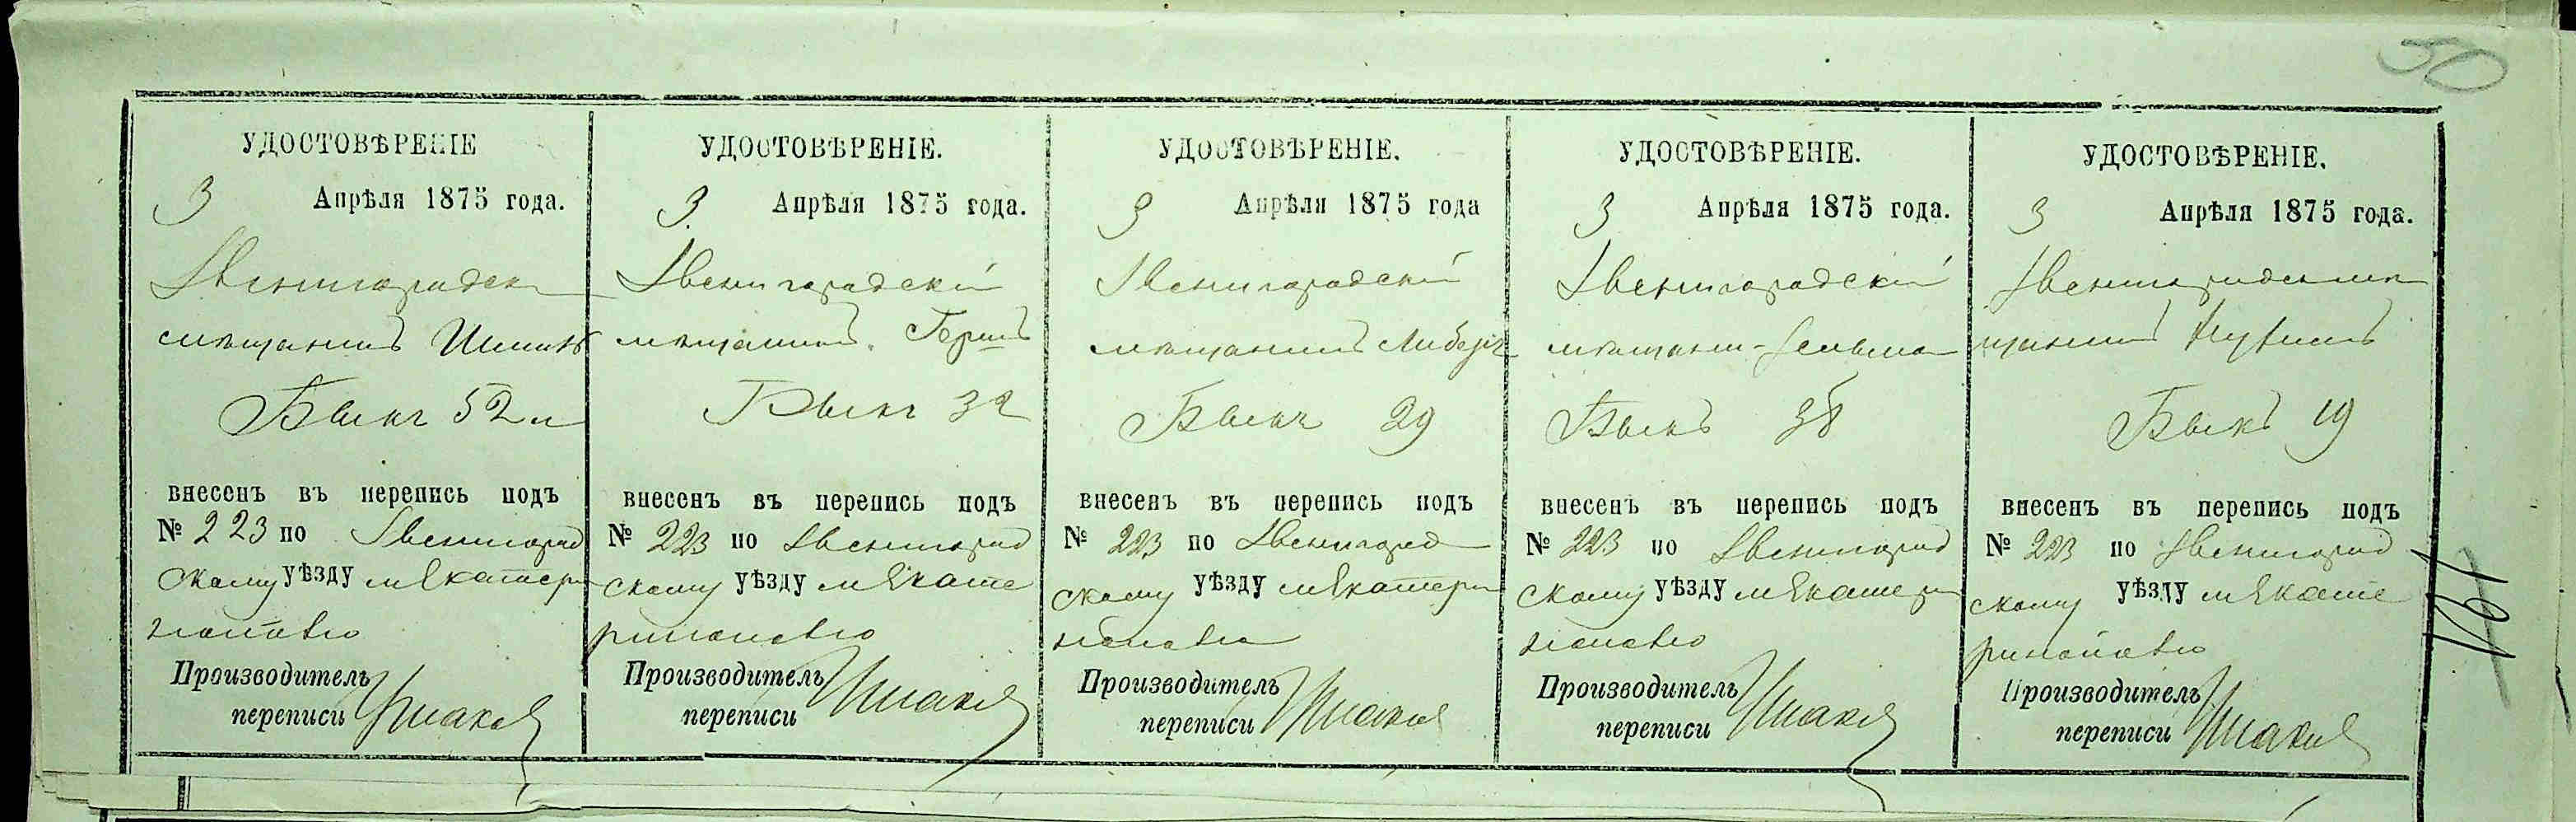 50
УДОСТОВѢРЕНІЕ
3 Апрѣля 1875 года.
Звенигородск
мѣщанинъ
Быкъ 52 л
внесенъ въ перепись подъ
№ 223 по Звенигород
скому уѣзду м Екатери
нополю
Производитель
переписи
УДОСТОВѢРЕНІЕ.
3 Апрѣля 1875 года.
Звенигородскій
мѣщанинъ Гершъ
Быкъ 32
внесенъ въ перепись подъ
№ 223 по Звенигород
скому уѣзду м Екате
ринополю
Производитель
переписи
УДОСТОВѢРЕНІЕ.
3 Апрѣля 1875 года
Звенигородскій
мѣщанинъ Либеръ
Быкъ 29
внесенъ въ перепись подъ
№ 223 по Звенигород
скому уѣзду м Екатери
нополю
Производитель
переписи
УДОСТОВѢРЕНІЕ.
3 Апрѣля 1875 года.
Звенигородскій
мѣщанин Зельман
Быкъ 38
внесенъ въ перепись подъ
№ 223 по Звенигород
скому уѣзду м Екатери
нополю
Производитель
переписи
УДОСТОВѢРЕНІЕ.
3 Апрѣля 1875 года.
Звенигородскій мѣ
щанинъ
Быкъ 19
внесенъ въ перепись подъ
№ 223 по Звенигород
скому уѣзду м Екате
ринополю
Производитель
переписи